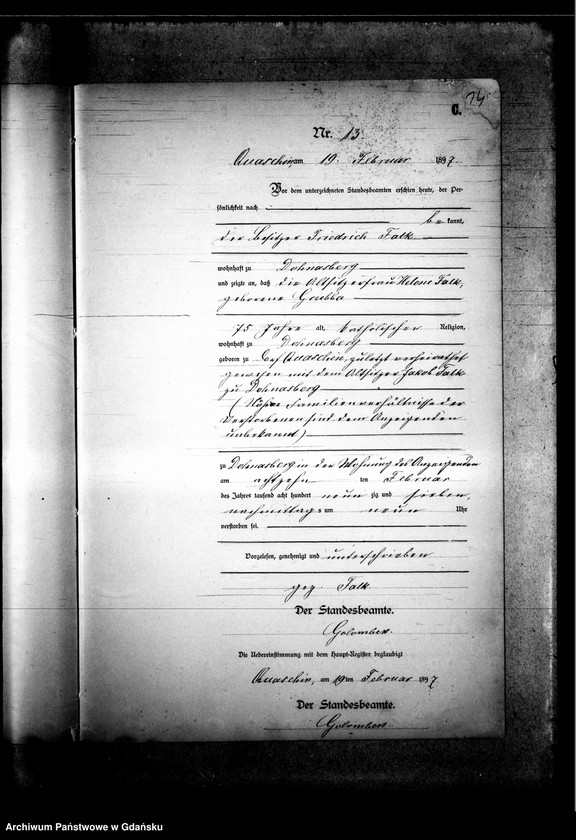 C.
74
Nr. 13
Quaschin, am 19. Februar 1897
Vor dem unterzeichneten Standesbeamten erschien heute, der Per-
sönlichkeit nach
bekannt,
der Besitzer Friedrich Falk
wohnhaft zu Dohnasberg
und zeigte an, daß die Altsitzerfrau Helene Falk,
geborene Grubba
75 Jahre alt, katholischer Religion,
wohnhaft zu Dohnasberg
geboren zu Dorf Quaschin, zuletzt verheirathet
gewesen mit dem Altsitzer Jakob Falk
zu Dohnasberg
(Nähere Familienverhältnisse der
Verstorbenen sind dem Anzeigenden
unbekannt)
zu Dohnasberg in der Wohnung des Anzeigenden
am achtzehn ten Februar
des Jahres tausend acht hundert neun zig und sieben,
nachmittags um neun Uhr
verstorben sei.
Vorgelesen, genehmigt und unterschrieben
gez. Falk
Der Standesbeamte.
Die Uebereinstimmung mit dem Haupt-Register beglaubigt
Quaschin, am 19ten Februar 1897
Der Standesbeamte.
Archiwum Państwowe w Gdańsku